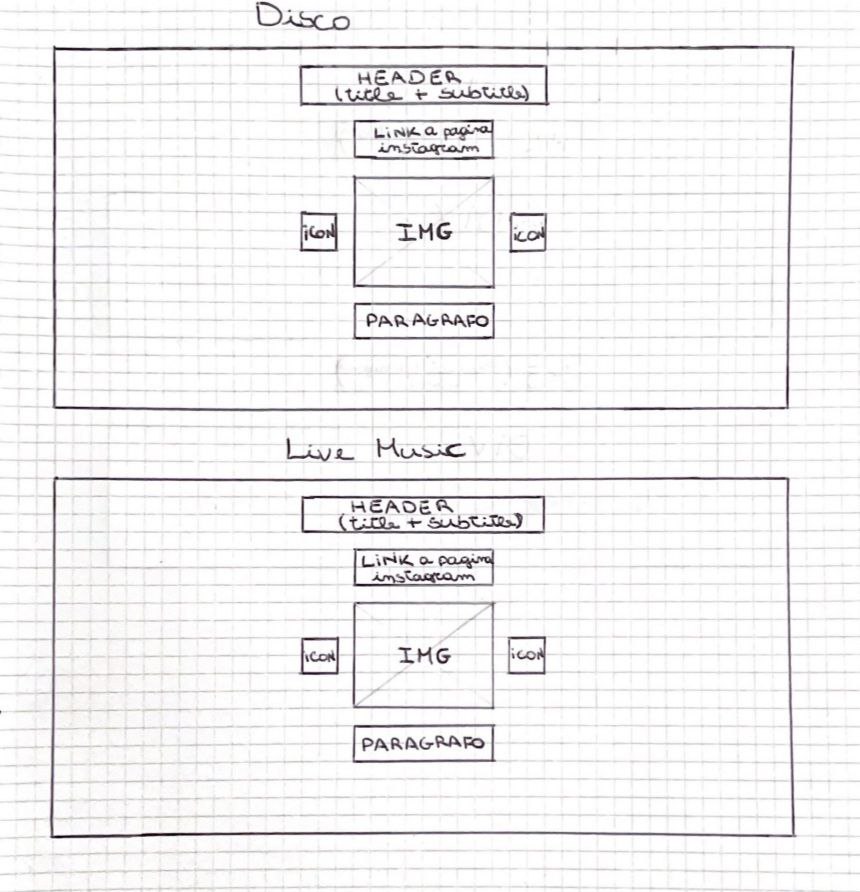 Disco
HEADER
(title + subtitle)
LINK a pagina
instagram
icon
IMG
icon
PARAGRAFO
Live Music
HEADER
(title + subtitle)
LINK a pagina
instagram
icon
IMG
icon
PARAGRAFO